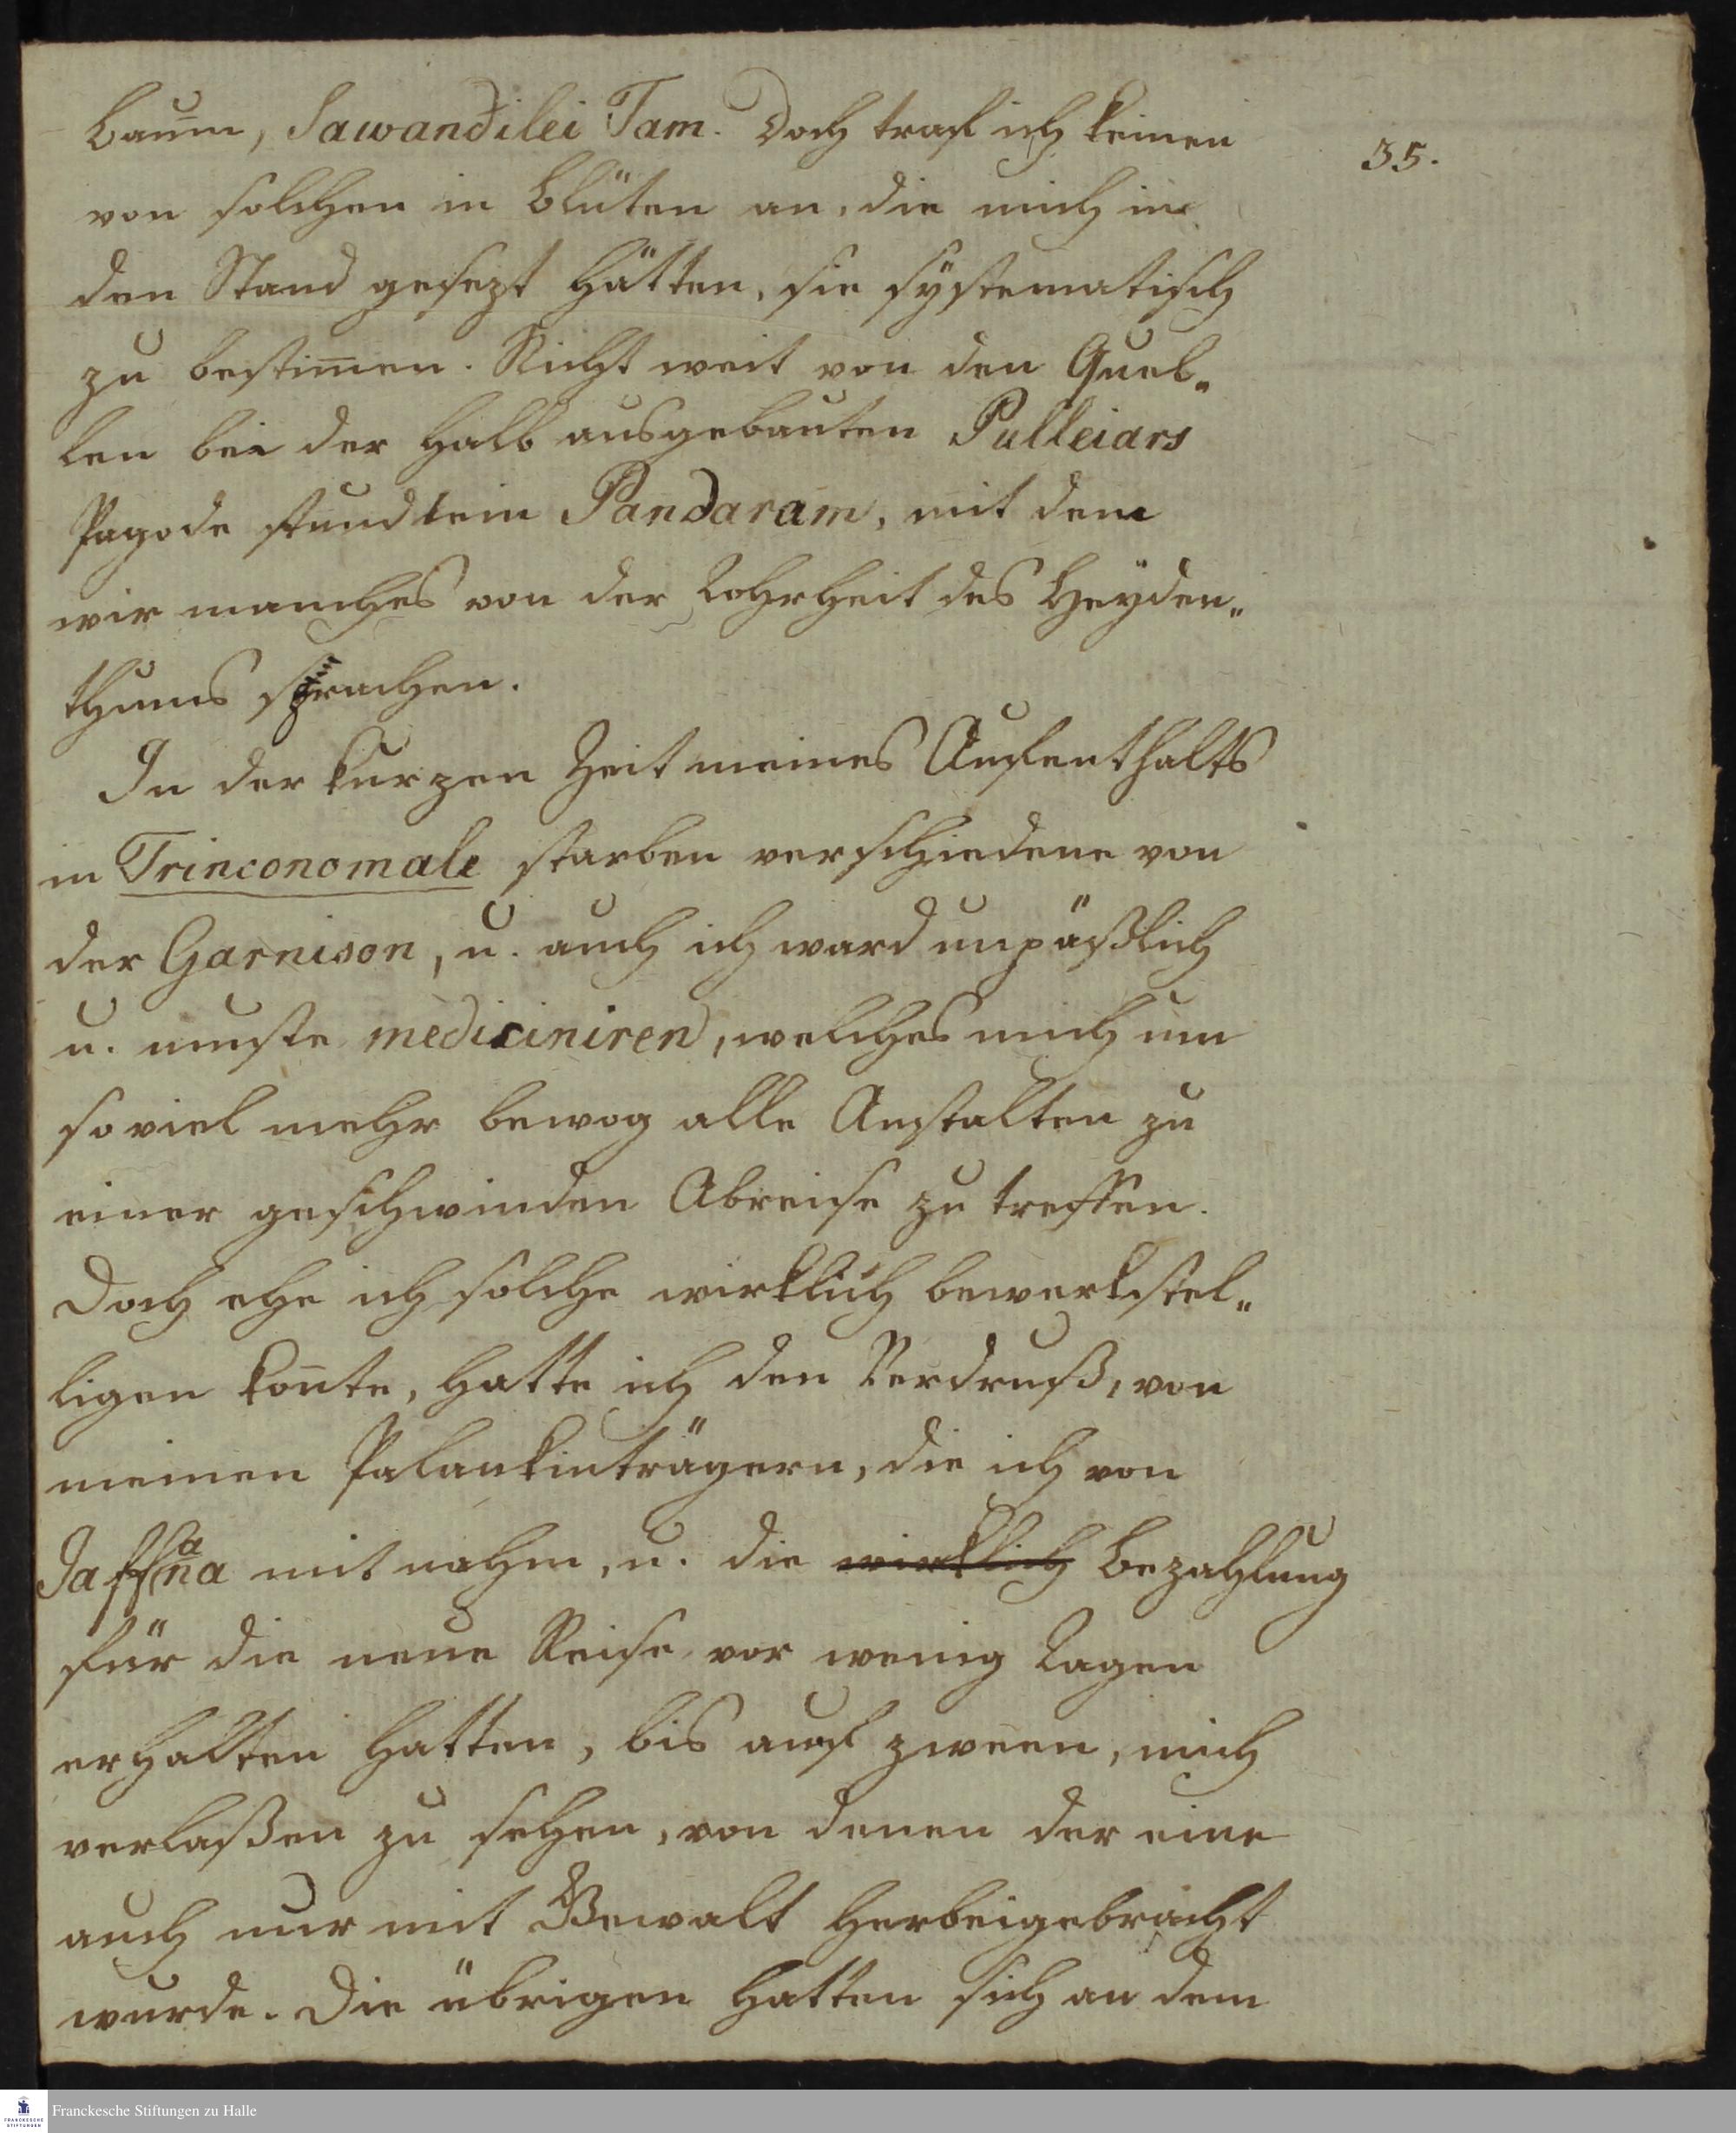 baum, Sawandilei Tam. Doch traf ich keinen
35.
von solchen in Blüten an, die mich in
den Stand gesezt hätten, sie systematisch
zu bestim̄en. Nicht weit von den Quel„
len bei der halb ausgebauten Pulleiars
Pagode stund ein Pandaram, mit dem
wir manches von der Thorheit des Heyden„
thums sprachen.
In der kurzen Zeit meines Aufenthalts
in Trinconomale starben verschiedene von
der Garnison, u. auch ich ward unpäßlich
u. muste mediciniren, welches mich um
so viel mehr bewog alle Anstalten zu
einer geschwinden Abreise zu treffen.
Doch ehe ich solche wirklich bewerkstel„
ligen kon̄te, hatte ich den Verdruß, von
meinen Palankinträgern, die ich von
Jaffana mit nahm, u. die wirklich Bezahlung
für die neue Reise vor wenig Tagen
erhalten hatten, bis auf zween, mich
verlaßen zu sehen, von denen der eine
auch nur mit Gewalt herbeigebracht
wurde. Die übrigen hatten sich an dem
Franckesche Stiftungen zu Halle